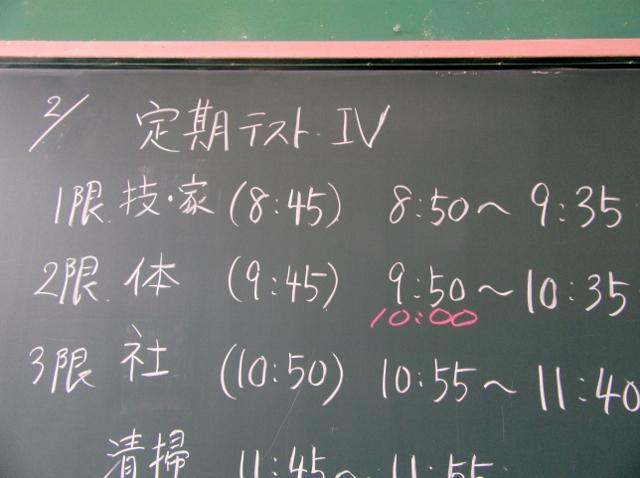 2/ 定期テスト IV
1限 技・家 (8:45) 8:50～9:35
2限 体 (9:45) 9:50～10:35
10:00
3限 社 (10:50) 10:55～11:40
清掃 11:45～11:55